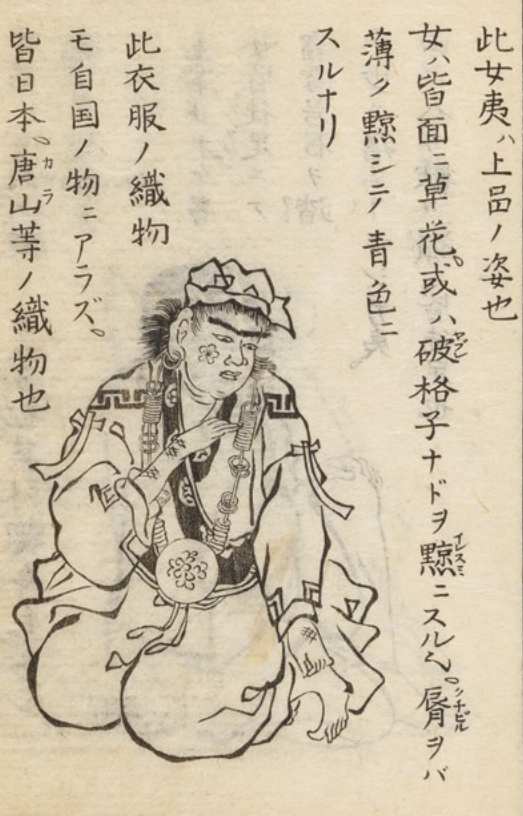 此女夷ハ上品ノ姿也
女ハ皆面ニ草花。或ハ破格子ナドヲ黥ニスル也。脣ヲバ
薄ク黥シテ青色ニ
スルナリ
此衣服ノ織物
モ自国ノ物ニアラズ。
皆日本。唐山等ノ織物也